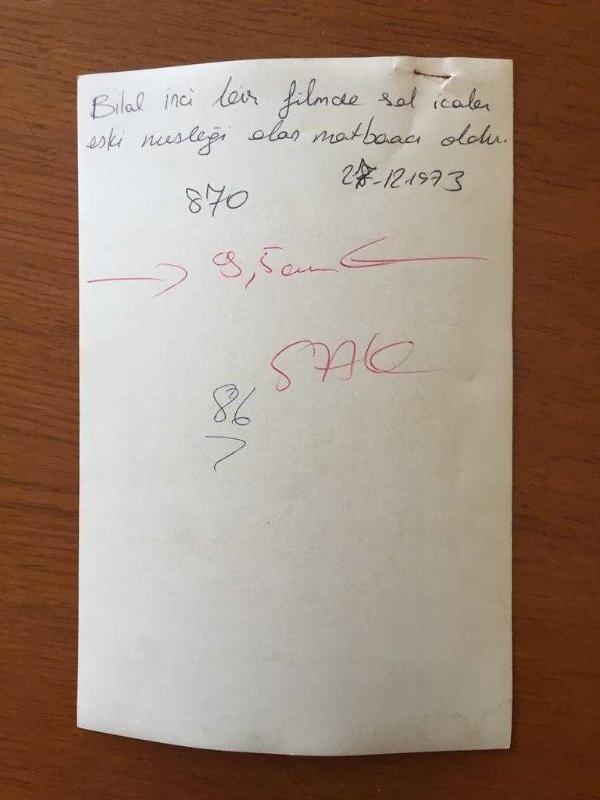 Bilal inci bir filmde rol icabı
eski mesleği olan matbaacı oldu.
-12.1973
870
9,5 cm
86